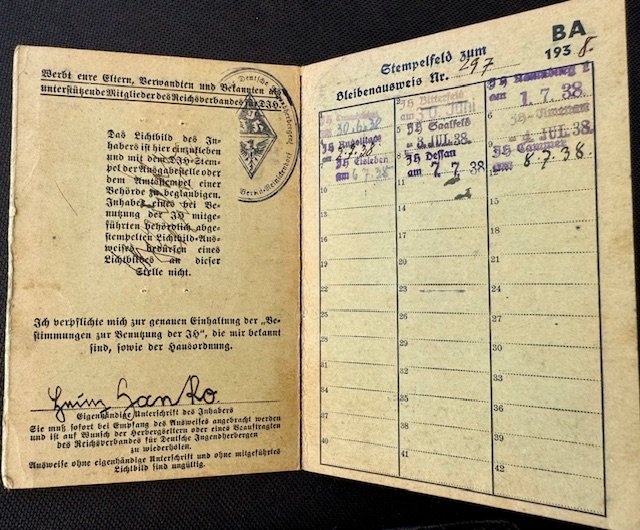 Werbt eure Eltern, Verwandten und Bekannten als
unterstützende Mitglieder des Reichsverbandes für DJH.
Das Lichtbild des In-
habers ist hier einzukleben
und mit dem DJH-Stem-
pel der Ausgabestelle oder
dem Amtsstempel einer
Behörde zu beglaubigen.
Inhaber eines bei Be-
nutzung der JH mitge-
führten behördlich abge-
stempelten Lichtbild-Aus-
weises bedürfen eines
Lichtbildes an dieser
Stelle nicht.
Ich verpflichte mich zur genauen Einhaltung der „Be-
stimmungen zur Benutzung der JH“, die mir bekannt
sind, sowie der Hausordnung.
Heinz Janko
Eigenhändige Unterschrift des Inhabers
Sie muß sofort bei Empfang des Ausweises angebracht werden
und ist auf Wunsch der Herbergseltern oder eines Beauftragten
des Reichsverbandes für Deutsche Jugendherbergen
zu wiederholen.
Ausweise ohne eigenhändige Unterschrift und ohne mitgeführtes
Lichtbild sind ungültig.
BA
Stempelfeld zum
Bleibenausweis Nr. 297
1938.
30.6.38
JH Bitterfeld
am 1.7.38
JH Saalfeld
JUL 38
JUL. 38
JH Eisleben
am 6.7.38
JH Dessau
am 7.7.38
8.7.38.
10
11
12
13
14
15
22
23
42